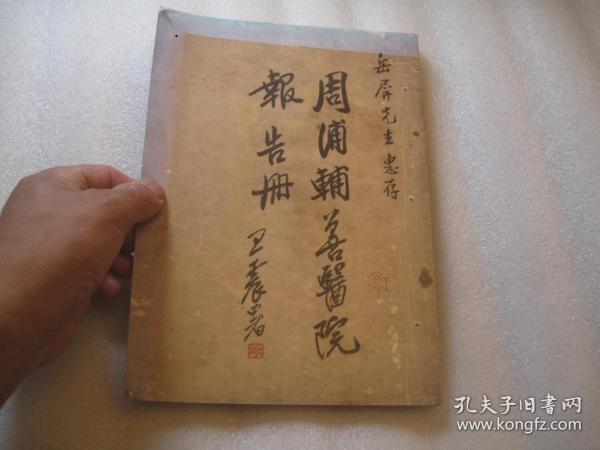 岳屏先生惠存
周浦輔善醫院
報告冊
王震署
孔夫子旧书网
www.kongfz.com